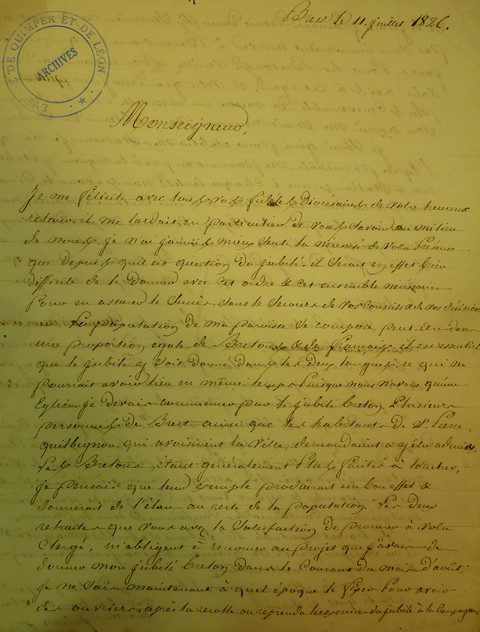 Brest le 11 juillet 1826.
EVECHE DE QUIMPER ET DE LEON
ARCHIVES
Monseigneur,
Je me félicite avec tous vos fidèles Diocésains de votre heureux
retour, il me tardait en particulier de vous savoir au milieu
de nous, je n'ai jamais mieux senti la nécessité de votre présence
que depuis qu'il est question du jubilé. il serait en effet bien
difficile de le donner avec cet ordre & cet ensemble nécessaires
pour en assurer le succès sans le secours de vos conseils & de vos décisions
La population de ma paroisse se compose peut être dans
une proportion égale de Bretons & de français. il est essentiel
que le jubilé y soit donné dans les deux langues, ce qui ne
pourrait avoir lieu en même temps puisque nous n'avons qu'une
Eglise. je devais commencer par le jubilé breton. Plusieurs
personnes de Brest ainsi que les habitants de St. Pierre
quilbignon, qui avoisinent la ville, demandaient à y être admis
Les Bretons étant généralement plus faciles à toucher,
je pensais que leur exemple produirait un bon effet &
donnerait de l'élan au reste de la population. Les deux
retraites que vous avez la satisfaction de procurer à votre
Clergé, m'obligent à renoncer au projet que j'avais de
donner mon jubilé breton dans le courant du mois d'août.
je ne sais maintenant à quel époque le fixer pour avoir
des ouvriers, après la récolte on reprendra les exercices du jubilé à la campagne,